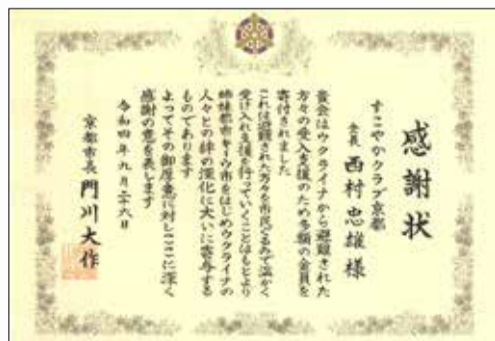 感謝状
すこやかクラブ京都
会長 西村忠雄 様
貴会はウクライナから避難された
方々の受入支援のため多額の金員を
寄付されました
これは避難された方々を市民ぐるみで温かく
受け入れ支援を行っていくことはもとより
姉妹都市キーウ市をはじめウクライナの
人々との絆の深化に大いに寄与する
ものであります
よってその御厚意に対しここに深く
感謝の意を表します
令和四年九月二十六日
京都市長 門川大作